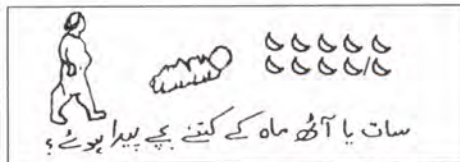 سات یا آٹھ ماہ کے کتنے بچے پیدا ہوئے؟